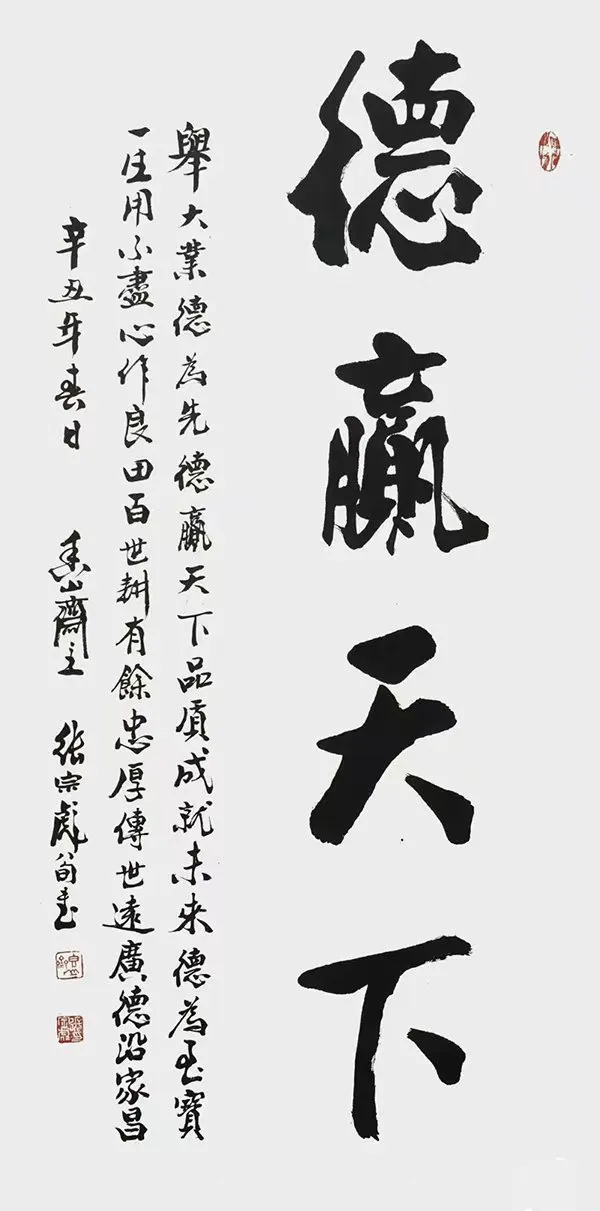 德贏天下
舉大業德為先德贏天下品質成就未來德為至寶
一生用不盡心作良田百世耕有餘忠厚傳世遠廣德沿家昌
辛丑年春日 山齋主 張宗彪書